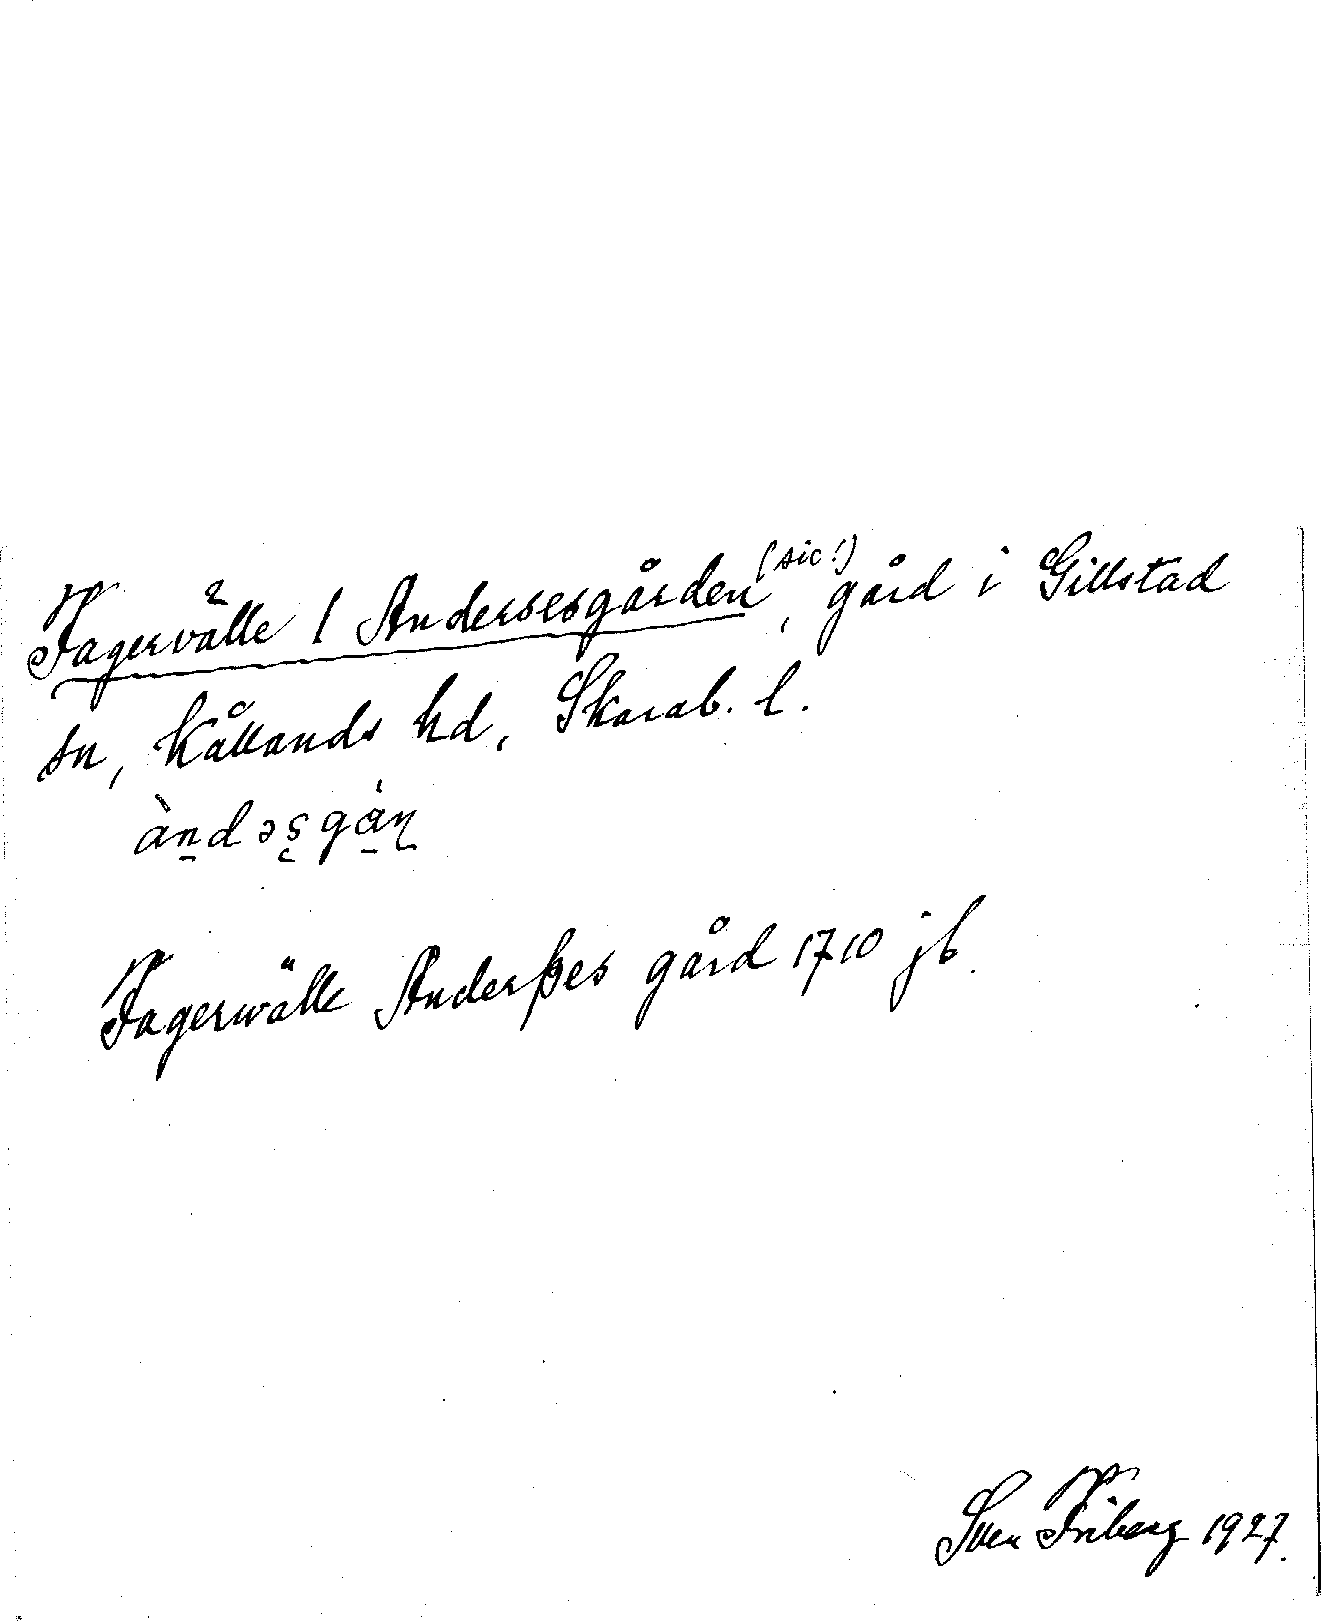 Fagervälle 1 Andersesgården (sic!), gård i Gillstad
sn, Kållands hd, Skarab. l.
àn̠dəs̨gȧ̠ɳ
Fagerwälle Anderßes gård 1710 jb.
Sven Friberg 1927.